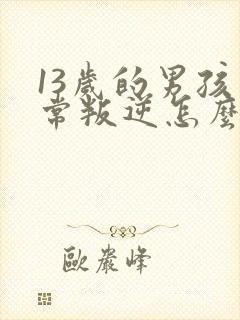 13歲的男孩
常叛逆怎麼
歐巖峰